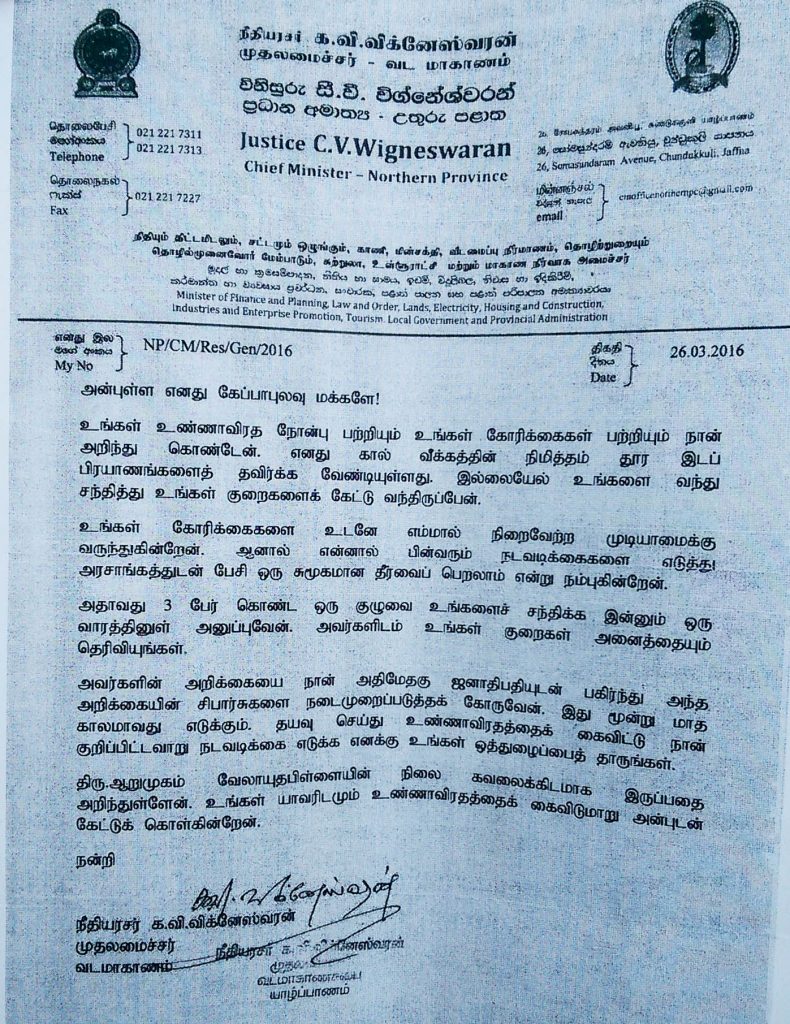 நீதியரசர் க.வி.விக்னேஸ்வரன்
முதலமைச்சர் - வட மாகாணம்
විනිසුරු සී.වී. විග්නේශ්වරන්
ප්‍රධාන අමාත්‍ය - උතුරු පළාත
Justice C.V.Wigneswaran
Chief Minister – Northern Province
தொலைபேசி
Telephone
021 221 7311
021 221 7313
தொலைநகல்
ෆැක්ස්
Fax
021 221 7227
26, සෝමසුන්දරම් ඇවනියු, චුන්ඩුකුලි, යාපනය
26, Somasundaram Avenue, Chundukkuli, Jaffna
மின்னஞ்சல்
email
cmofficenorthernpc@gmail.com
நிதியும் திட்டமிடலும், சட்டமும் ஒழுங்கும், காணி, மின்சக்தி, வீடமைப்பு நிர்மாணம், தொழிற்றுறையும்
தொழில்முனைவோர் மேம்பாடும், சுற்றுலா, உள்ளூராட்சி மற்றும் மாகாண நிர்வாக அமைச்சர்
Minister of Finance and Planning, Law and Order, Lands, Electricity, Housing and Construction,
Industries and Enterprise Promotion, Tourism, Local Government and Provincial Administration
எனது இல
මගේ අංකය
My No
NP/CM/Res/Gen/2016
திகதி
දිනය
Date
26.03.2016
அன்புள்ள எனது கேப்பாபுலவு மக்களே!
உங்கள் உண்ணாவிரத நோன்பு பற்றியும் உங்கள் கோரிக்கைகள் பற்றியும் நான்
அறிந்து கொண்டேன். எனது கால் வீக்கத்தின் நிமித்தம் தூர இடப்
பிரயாணங்களைத் தவிர்க்க வேண்டியுள்ளது. இல்லையேல் உங்களை வந்து
சந்தித்து உங்கள் குறைகளைக் கேட்டு வந்திருப்பேன்.
உங்கள் கோரிக்கைகளை உடனே எம்மால் நிறைவேற்ற முடியாமைக்கு
வருந்துகின்றேன். ஆனால் என்னால் பின்வரும் நடவடிக்கைகளை எடுத்து
அரசாங்கத்துடன் பேசி ஒரு சுமூகமான தீர்வைப் பெறலாம் என்று நம்புகின்றேன்.
அதாவது 3 பேர் கொண்ட ஒரு குழுவை உங்களைச் சந்திக்க இன்னும் ஒரு
வாரத்தினுள் அனுப்புவேன். அவர்களிடம் உங்கள் குறைகள் அனைத்தையும்
தெரிவியுங்கள்.
அவர்களின் அறிக்கையை நான் அதிமேதகு ஜனாதிபதியுடன் பகிர்ந்து அந்த
அறிக்கையின் சிபார்சுகளை நடைமுறைப்படுத்தக் கோருவேன். இது மூன்று மாத
காலமாவது எடுக்கும். தயவு செய்து உண்ணாவிரதத்தைக் கைவிட்டு நான்
குறிப்பிட்டவாறு நடவடிக்கை எடுக்க எனக்கு உங்கள் ஒத்துழைப்பைத் தாருங்கள்.
திரு.ஆறுமுகம் வேலாயுதபிள்ளையின் நிலை கவலைக்கிடமாக இருப்பதை
அறிந்துள்ளேன். உங்கள் யாவரிடமும் உண்ணாவிரதத்தைக் கைவிடுமாறு அன்புடன்
கேட்டுக் கொள்கின்றேன்.
நன்றி
க.வி.விக்னேஸ்வரன்
நீதியரசர் க.வி.விக்னேஸ்வரன்
முதலமைச்சர்
வடமாகாணம்
நீதியரசர் க.வி.விக்னேஸ்வரன்
வடமாகாணசபை
யாழ்ப்பாணம்